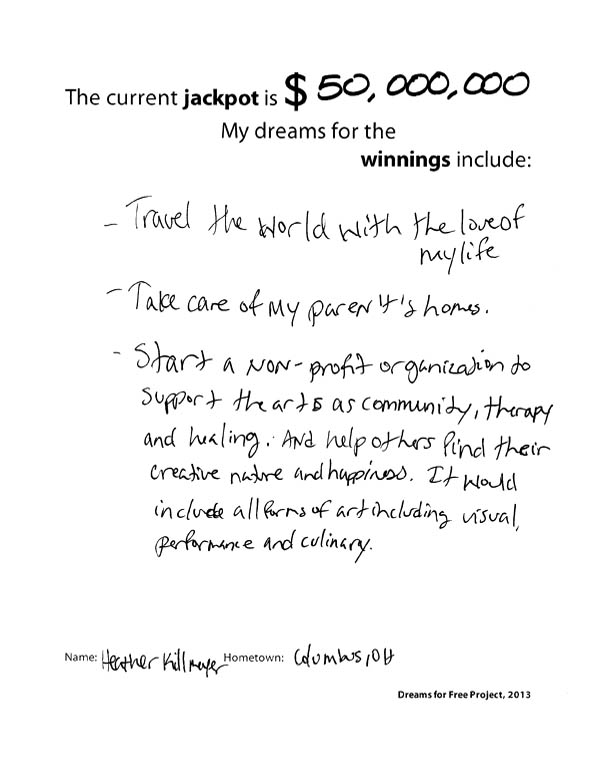 The current jackpot is $ 50,000,000
My dreams for the
winnings include:
- Travel the world with the love of
my life
- Take care of my parent's homes.
- Start a non-profit organization to
support the arts as community, therapy
and healing. And help others find their
creative nature and happiness. It would
include all forms of art including visual,
performance and culinary.
Name: Heather Killmeyer Hometown: Columbus, OH
Dreams for Free Project, 2013